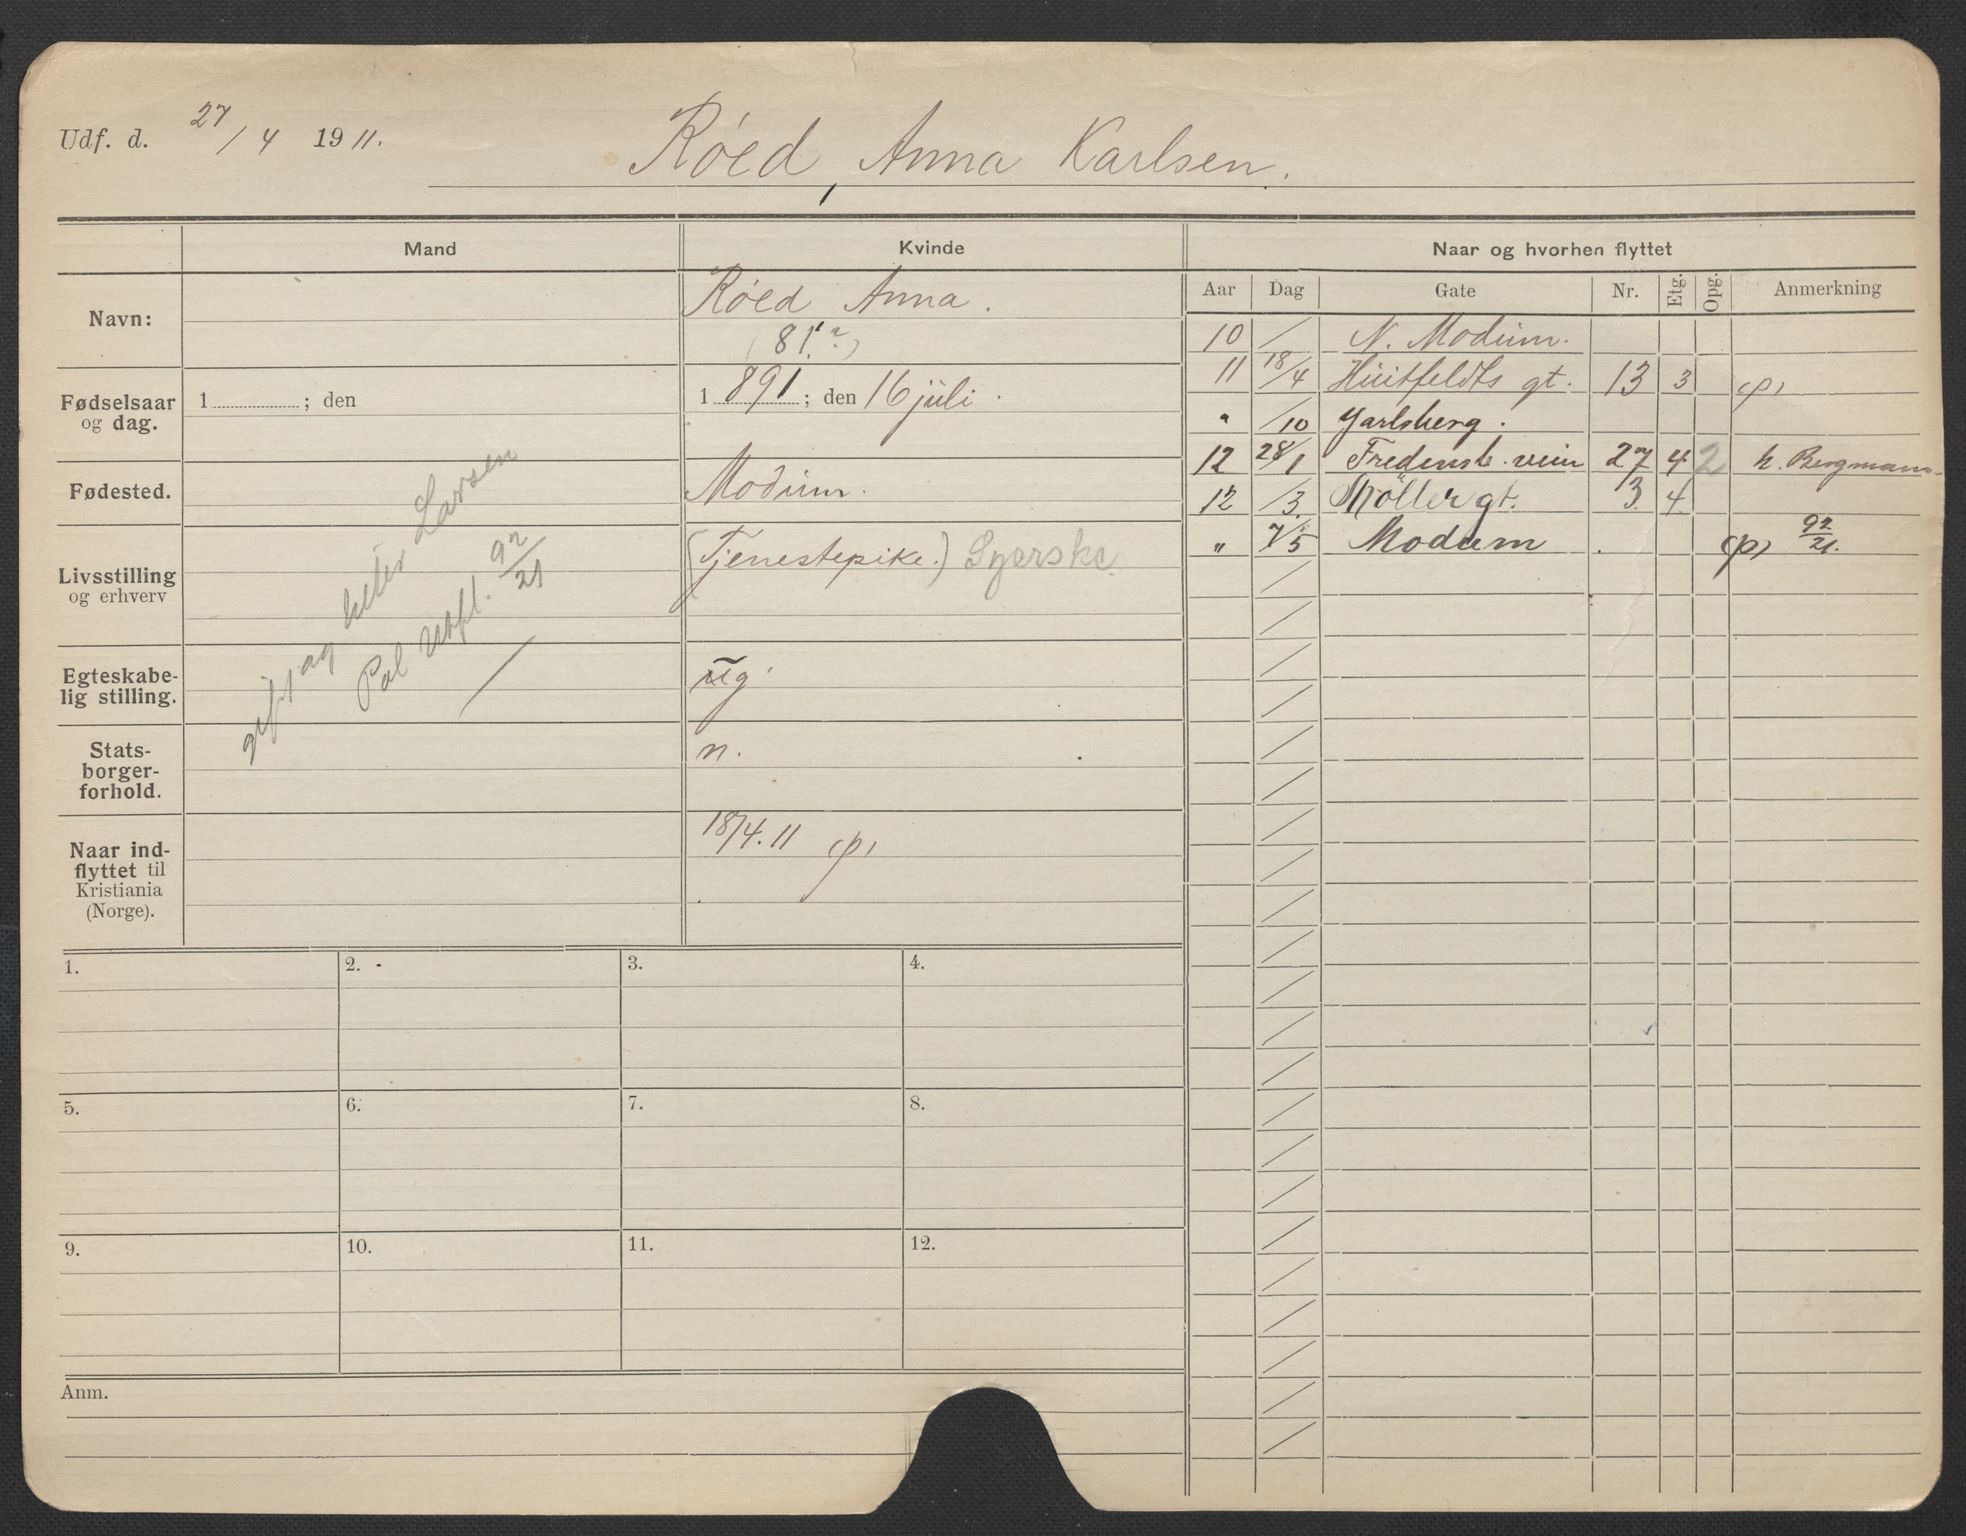 Udf. d. 27/4 1911.
Røed, Anna Karlsen.
Mand
Kvinde
Naar og hvorhen flyttet
Navn:
Røed Anna.
(81?)
Fødselsaar
og dag.
1 ; den
1 891 ; den 16 juli.
Fødested.
Modum.
Livsstilling
og erhverv
(Tjenestepike.) Syerske
Egteskabe-
lig stilling.
ug
Stats-
borger-
forhold.
n.
Naar ind-
flyttet til
Kristiania
(Norge).
18/4.11 (p)
gift og heter Larsen
Pol Utfl. 92/21
Aar Dag Gate Nr. Etg. Opg. Anmerkning
10 / N. Modum.
11 18/4 Huitfeldts gt. 13 3 (p)
" /10 Jarlsberg.
12 28/1 Fredensb. veien 27 4 2 h. Bergmann
12 /3 Møllergt. 3 4
" 7/5 Modum (p) 92/21.
1.
2.
3.
4.
5.
6.
7.
8.
9.
10.
11.
12.
Anm.